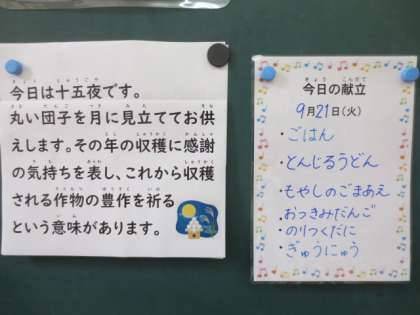 今日は十五夜です。
丸い団子を月に見立ててお供
えします。その年の収穫に感謝
の気持ちを表し、これから収穫
される作物の豊作を祈る
という意味があります。
今日の献立
9月21日(火)
・ごはん
・とんじるうどん
・もやしのごまあえ
・おつきみだんご
・のりつくだに
・ぎゅうにゅう